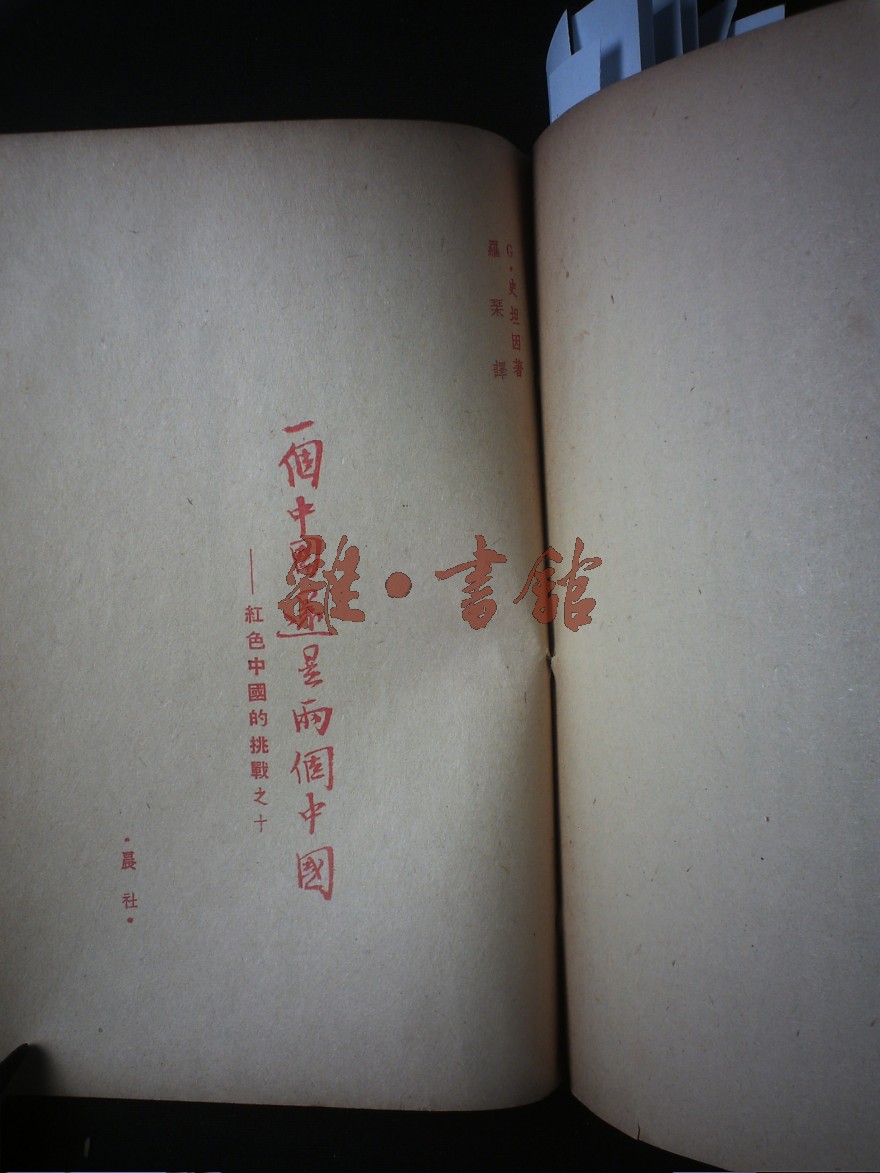 G·史坦因著
羅栞譯
一個中國還是兩個中國
——紅色中國的挑戰之十
·晨社·
雜·書館